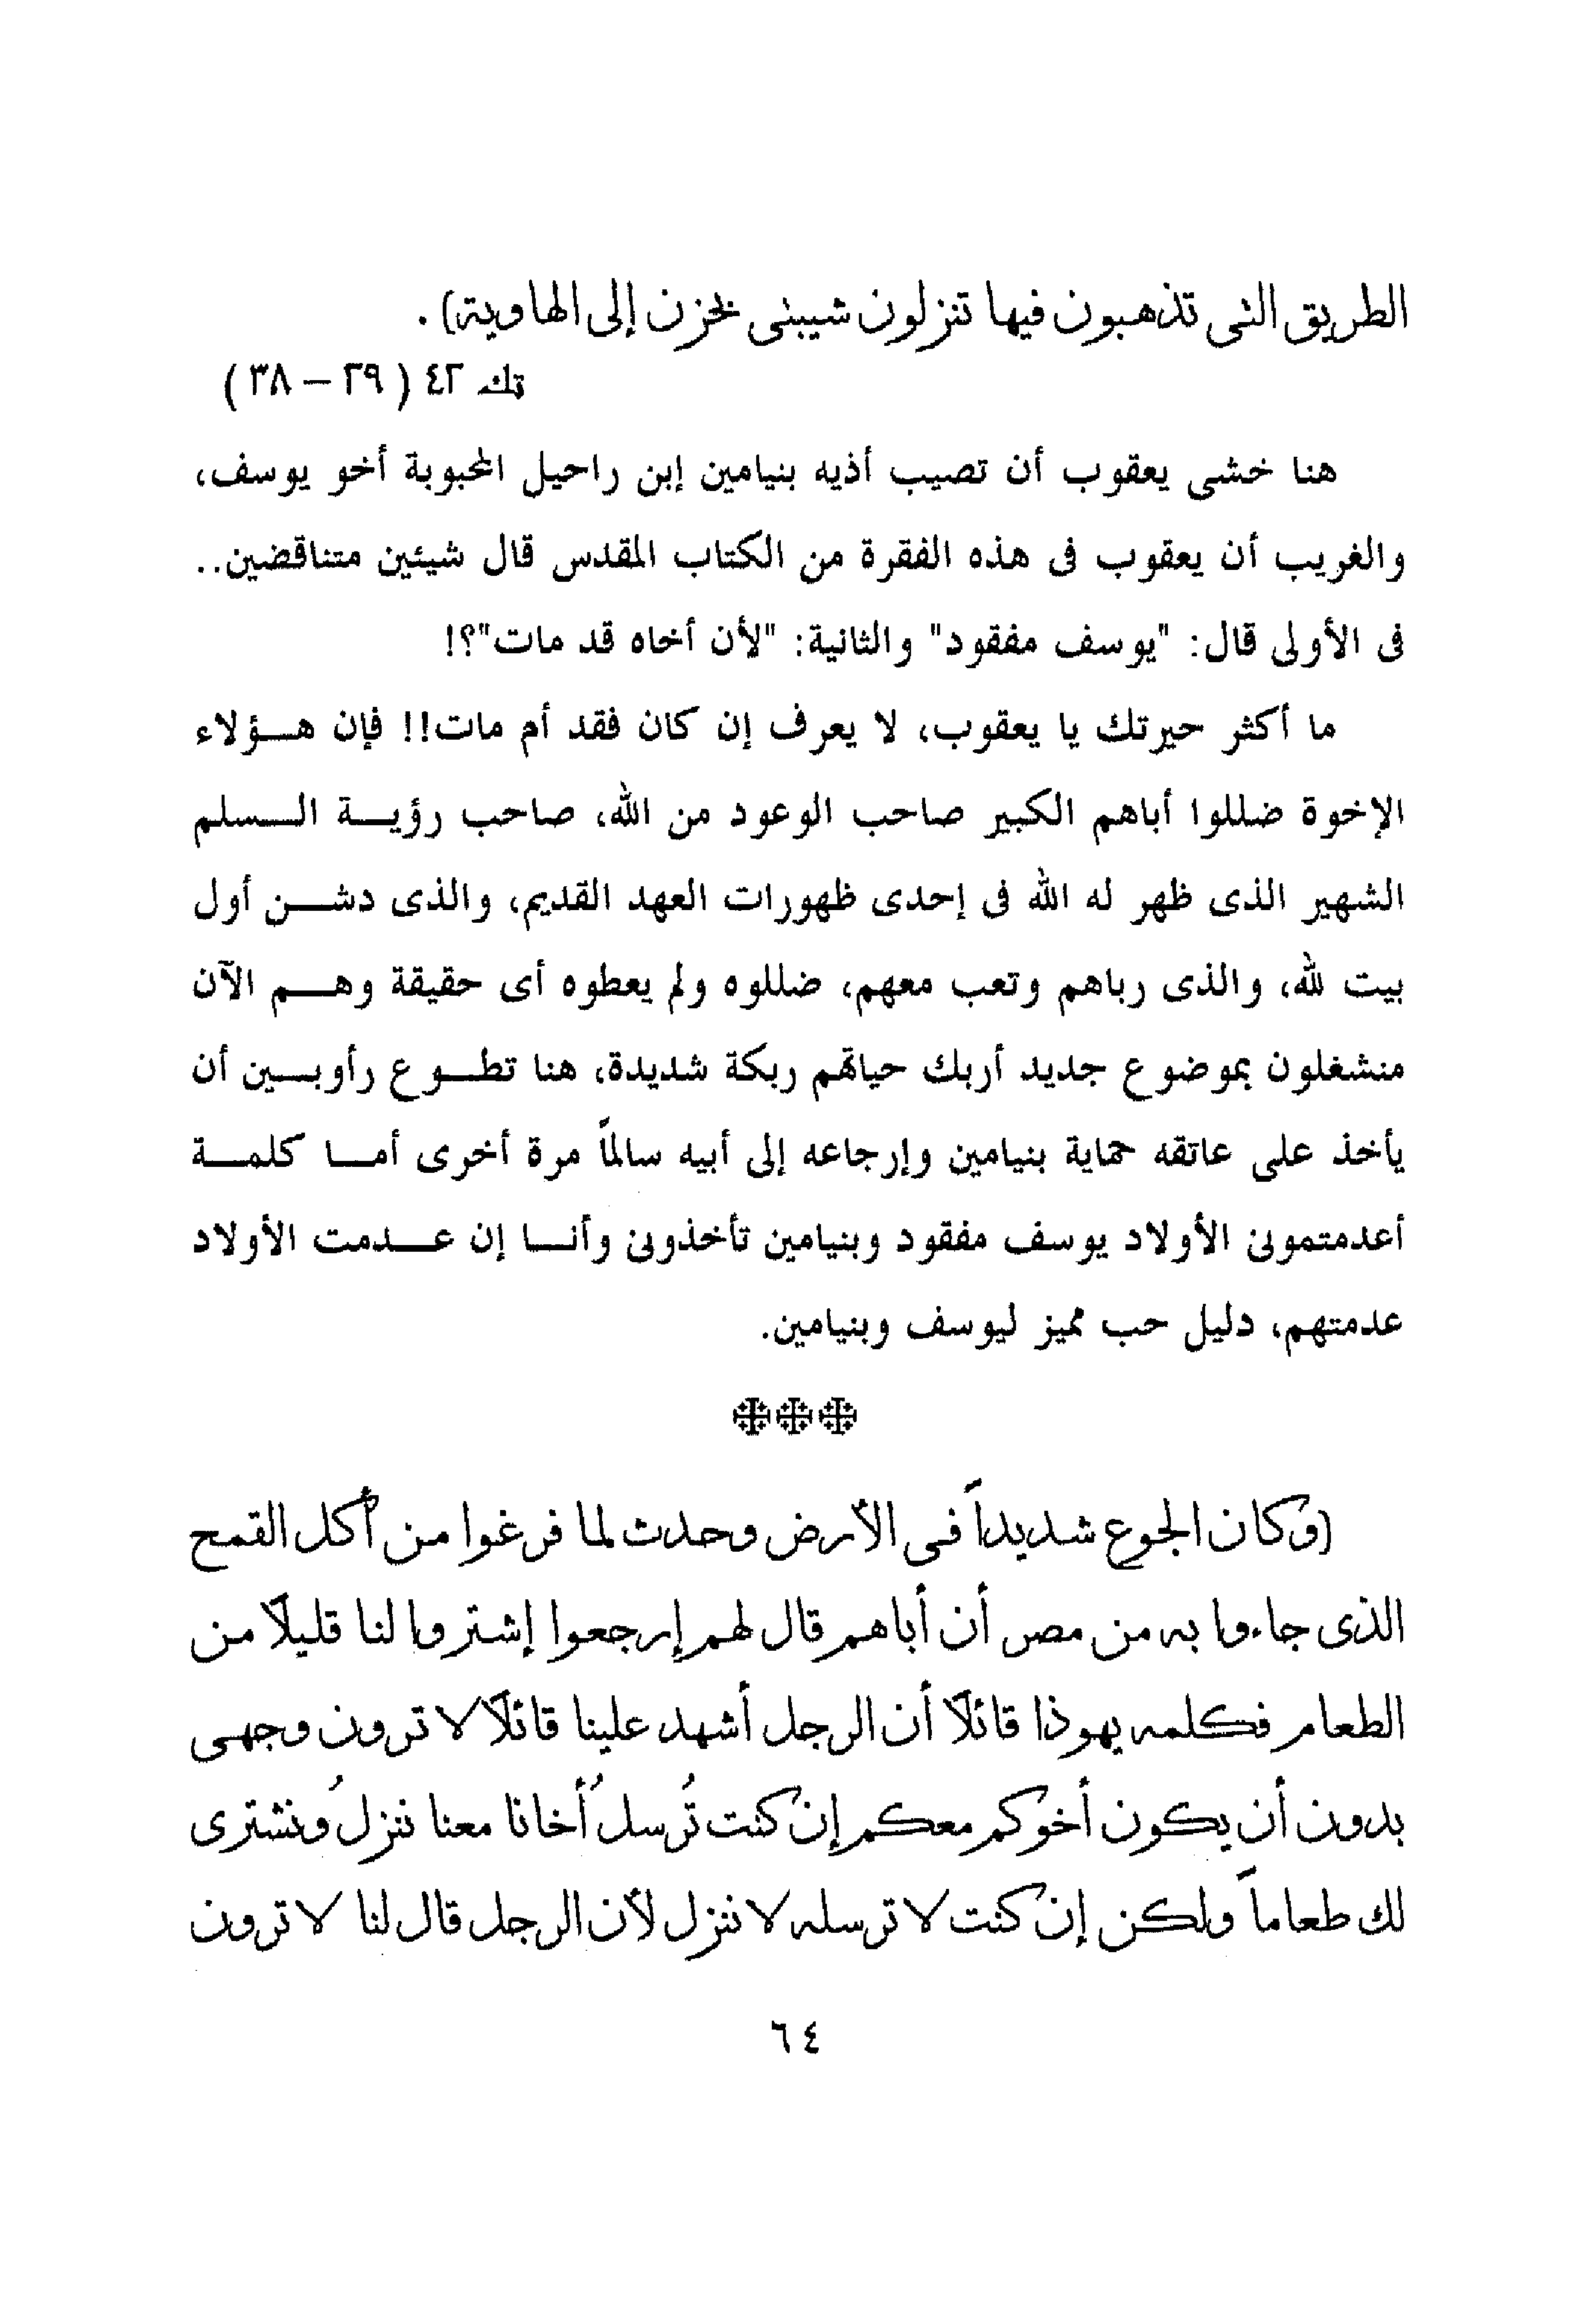 الطريق التى تذهبون فيها تنزلون شيبتى بحزن إلى الهاوية) .
تك ٤٢ ( ٢٩ – ٣٨ )
هنا خشى يعقوب أن تصيب أذيه بنيامين إبن راحيل المحبوبة أخو يوسف،
والغريب أن يعقوب فى هذه الفقرة من الكتاب المقدس قال شيئين متناقضين..
فى الأولى قال: "يوسف مفقود" والثانية: "لأن أخاه قد مات"؟!
ما أكثر حيرتك يا يعقوب، لا يعرف إن كان فقد أم مات!! فإن هـؤلاء
الإخوة ضللوا أباهم الكبير صاحب الوعود من الله، صاحب رؤيـة الـسلم
الشهير الذى ظهر له الله فى إحدى ظهورات العهد القديم، والذى دشـن أول
بيت لله، والذى رباهم وتعب معهم، ضللوه ولم يعطوه أى حقيقة وهـم الآن
منشغلون بموضوع جديد أربك حياتهم ربكة شديدة، هنا تطـوع رأوبـين أن
يأخذ على عاتقه حماية بنيامين وإرجاعه إلى أبيه سالماً مرة أخرى أمـا كلمـة
أعدمتمونى الأولاد يوسف مفقود وبنيامين تأخذونى وأنـا إن عـدمت الأولاد
عدمتهم، دليل حب مميز ليوسف وبنيامين.
(وكان الجوع شديداً فى الأرض وحدث لما فرغوا من أكل القمح
الذى جاءوا به من مصر أن أباهم قال لهم إرجعوا إشتروا لنا قليلاً من
الطعام فكلمه يهوذا قائلاً أن الرجل أشهد علينا قائلاً لا ترون وجهى
بدون أن يكون أخوكم معكم إن كنت تُرسلُ أخانا معنا ننزلُ ونشترى
لك طعاماً ولكن إن كنت لا ترسله لا ننزل لأن الرجل قال لنا لا ترون
٦٤